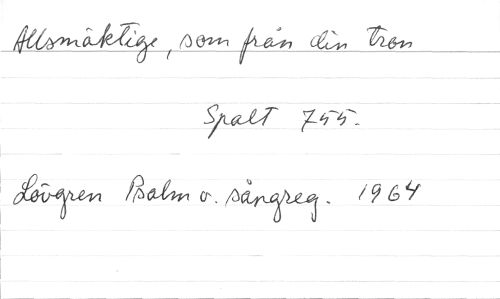 Allsmäktige, som från din tron
Spalt 755.
Lövgren Psalm o. sångreg. 1964